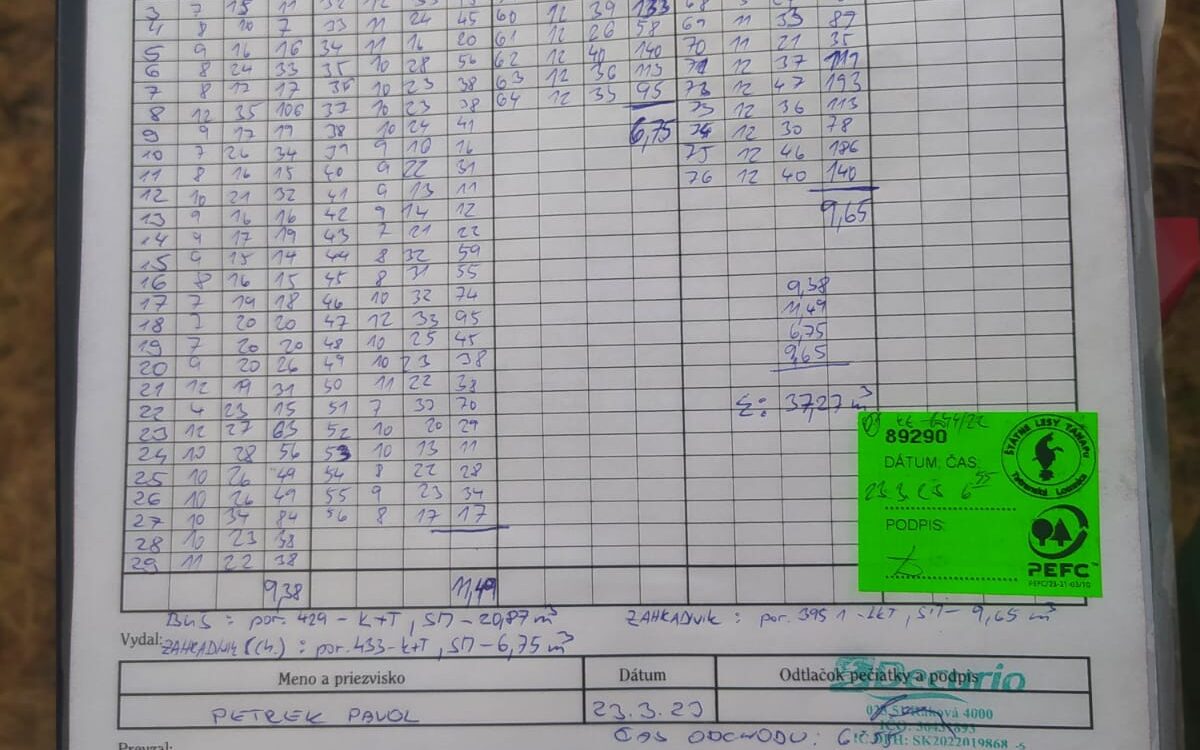 4 8 10 7 33 11 24 45 60 12 39 133
5 9 16 16 34 11 16 20 61 12 26 58 69 11 33 89
6 8 24 33 35 10 28 56 62 12 40 140 70 11 21 35
7 8 17 17 36 10 23 38 63 12 36 113 71 12 37 119
8 12 35 106 37 10 23 38 64 12 33 95 12 47 193
9 9 17 19 38 10 24 41 6,75 12 36 113
10 7 26 34 39 9 10 16 74 12 30 78
11 8 16 15 40 9 22 31 75 12 46 186
12 10 21 32 41 9 13 11 76 12 40 140
13 9 16 16 42 9 14 12 9,65
14 9 17 19 43 7 21 22
15 9 15 14 44 8 32 59
16 8 16 15 45 8 31 55 9,38
17 7 19 18 46 10 32 74 11,49
18 7 20 20 47 12 33 95 6,75
19 7 20 20 48 10 25 45 9,65
20 9 20 26 49 10 23 38
21 12 19 31 50 11 22 38 Σ: 37,27 m³
22 4 23 15 51 7 37 70
23 12 27 63 52 10 20 29
24 10 28 56 53 10 13 11
25 10 26 49 54 8 22 28
26 10 26 49 55 9 23 34
27 10 34 84 56 8 17 17
28 10 23 38
29 11 22 38
9,38 11,49
89290
ŠTÁTNE LESY TANAPU
Tatranská Lomnica
DÁTUM, ČAS:
23 3 23 6 55
PODPIS:
PEFC™
PEFC/23-21-03/10
por. 429 - k+T, SM - 20,87 m³ ZAHRADNIK : por. 395 1 - k+T, SM - 9,65 m³
Vydal: ZAHRADNIK (Ch.) : por. 433 - k+T, SM - 6,75 m³
Meno a priezvisko Dátum Odtlačok pečiatky a podpis
PETREK PAVOL 23.3.23
Decurio
Raková 4000
IČ DPH: SK2022019868
ČAS ODCHODU:
Prevzal: